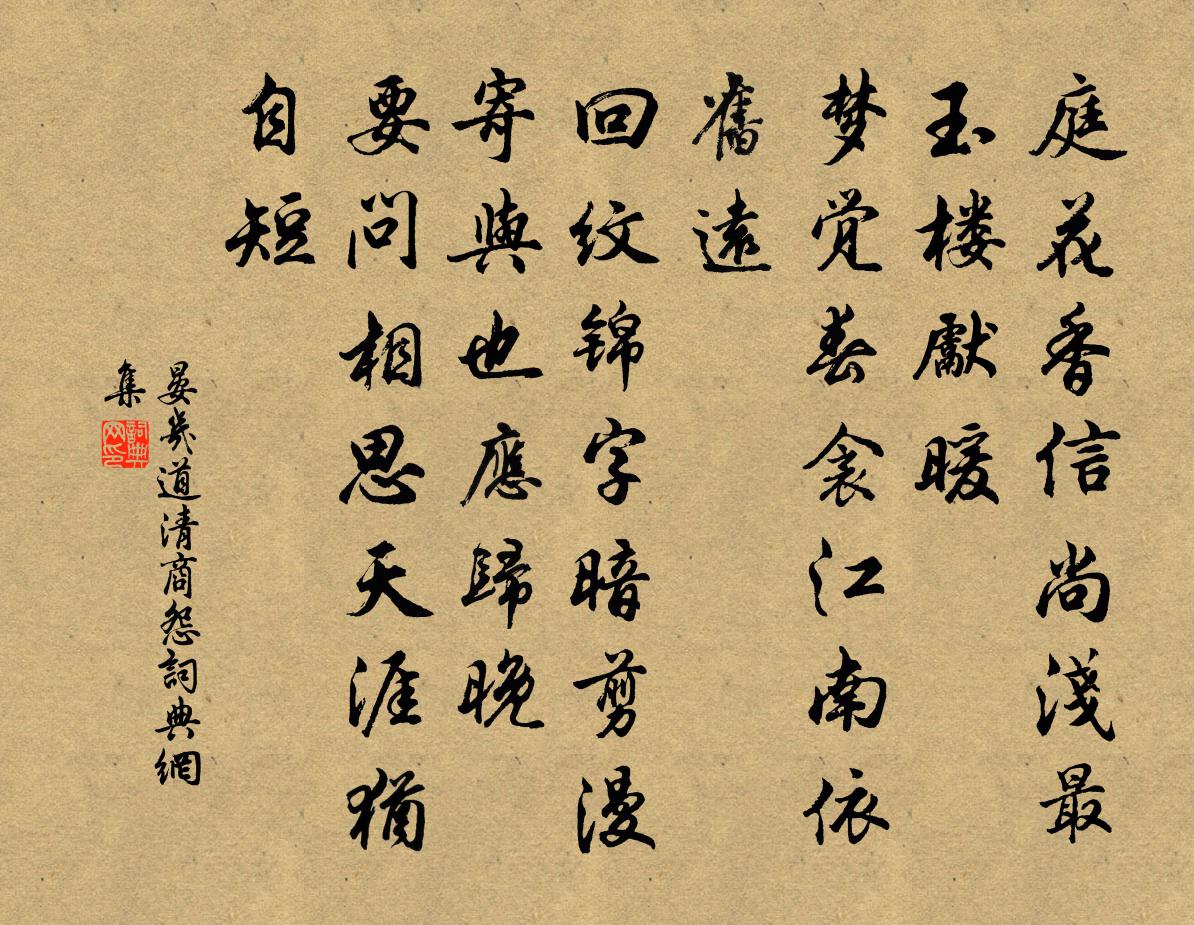 庭花香信尚淺最
玉楼獻暖
梦觉春衾江南依
舊遠
回纹锦字暗剪漫
寄與也應歸晚
要問相思天涯猶
自短
晏幾道清商怨詞典網
集
詞典网印